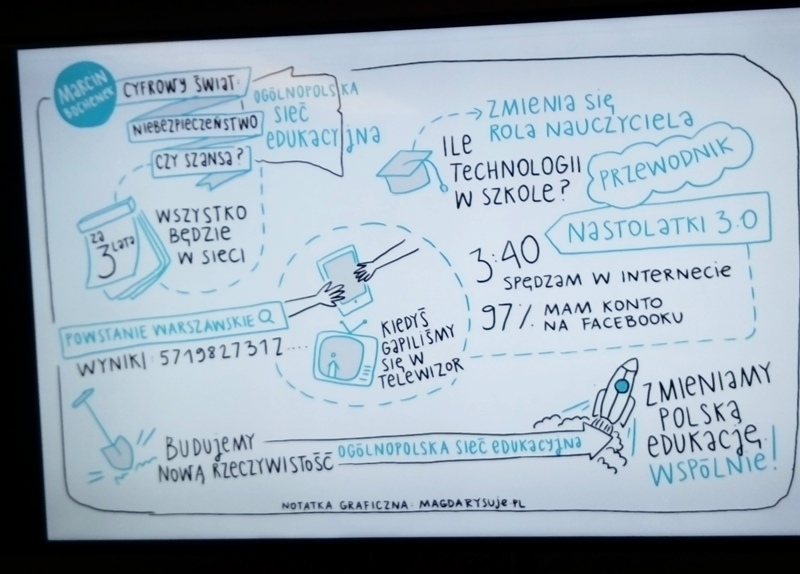 MARCIN
BOCHENEK
CYFROWY ŚWIAT:
NIEBEZPIECZEŃSTWO
CZY SZANSA?
OGÓLNOPOLSKA
SIEĆ
EDUKACYJNA
ZMIENIA SIĘ
ROLA NAUCZYCIELA
ILE
TECHNOLOGII
W SZKOLE?
PRZEWODNIK
NASTOLATKI 3.0
3:40
SPĘDZAM W INTERNECIE
97% MAM KONTO
NA FACEBOOKU
ZA
3 LATA
WSZYSTKO
BĘDZIE
W SIECI
POWSTANIE WARSZAWSKIE
WYNIKI: 5719827312....
KIEDYŚ
GAPILIŚMY
SIĘ W
TELEWIZOR
BUDUJEMY
NOWĄ RZECZYWISTOŚĆ
OGÓLNOPOLSKA SIEĆ EDUKACYJNA
ZMIENIAMY
POLSKĄ
EDUKACJĘ
WSPÓLNIE!
NOTATKA GRAFICZNA: MAGDARYSUJE.PL